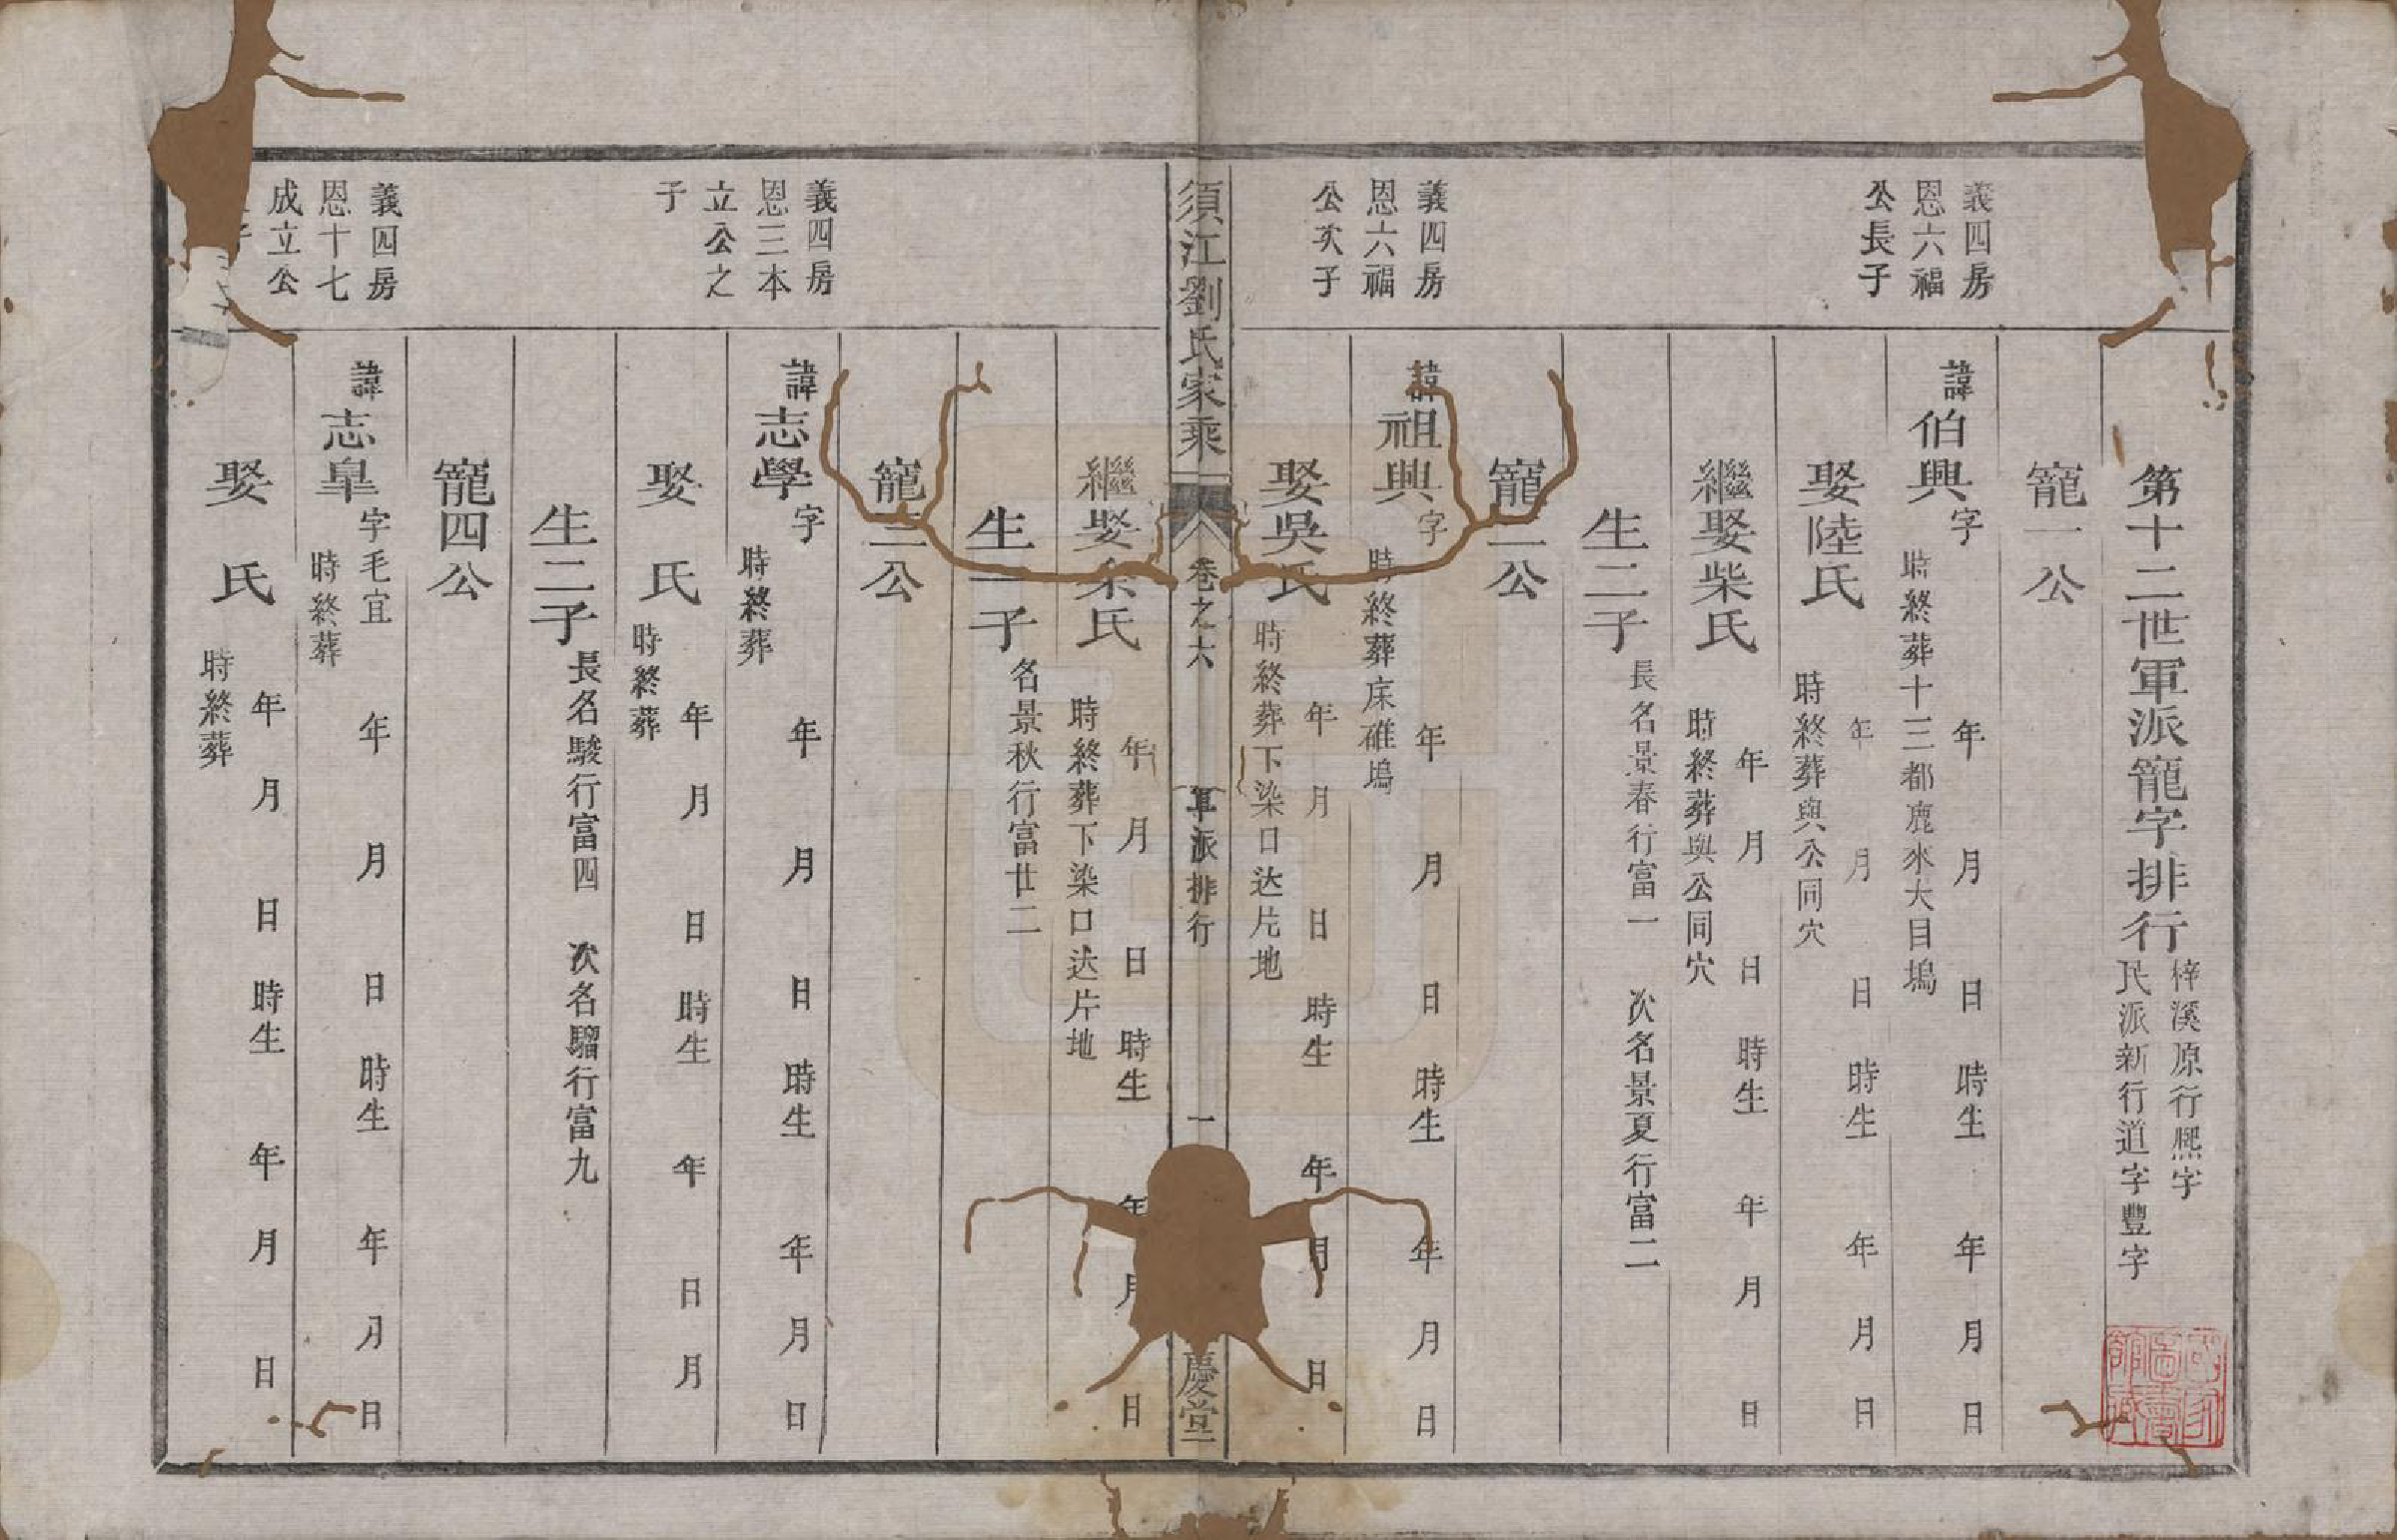 第十二世軍派寵字排行
梓溪原行熙字
民派新行道字豐字
寵一公
義四房
恩六福
公長子
諱伯興字 年 月 日 時生 年 月 日
時終葬十三都鹿來大目塢
娶陸氏 年 月 日 時生 年 月 日
時終葬與公同穴
繼娶柴氏 年 月 日 時生 年 月 日
時終葬與公同穴
生二子 長名景春行富一 次名景夏行富二
寵二公
義四房
恩六福
公次子
諱祖興字 年 月 日 時生 年 月 日
時終葬床碓塢
娶吳氏 年 月 日 時生 年 月 日
時終葬下染口达片地
須江劉氏家乘 卷之六 軍派排行 一 慶堂
繼娶柴氏 年 月 日 時生 年 月 日
時終葬下染口达片地
生一子 名景秋行富廿二
寵三公
義四房
恩三本
立公之
子
諱志學字 年 月 日 時生 年 月 日
時終葬
娶 氏 年 月 日 時生 年 日 月
時終葬
生二子 長名駿行富四 次名騮行富九
寵四公
義四房
恩十七
成立公
子
諱志皐字毛宜 年 月 日 時生 年 月 日
時終葬
娶 氏 年 月 日 時生 年 月 日
時終葬
國家圖書館藏